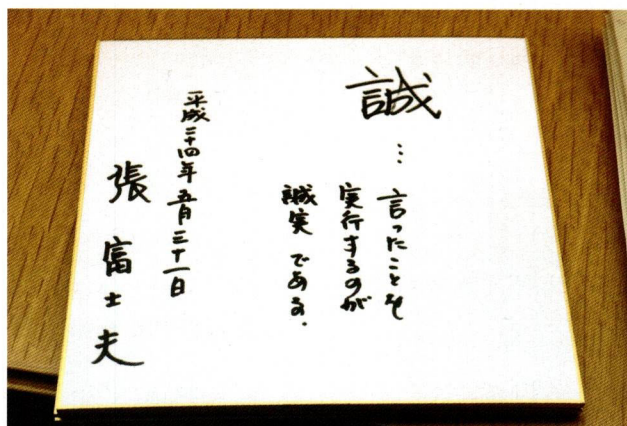 誠
… 言ったことを
実行するのが
誠実である.
平成二十四年五月三十一日
張富士夫